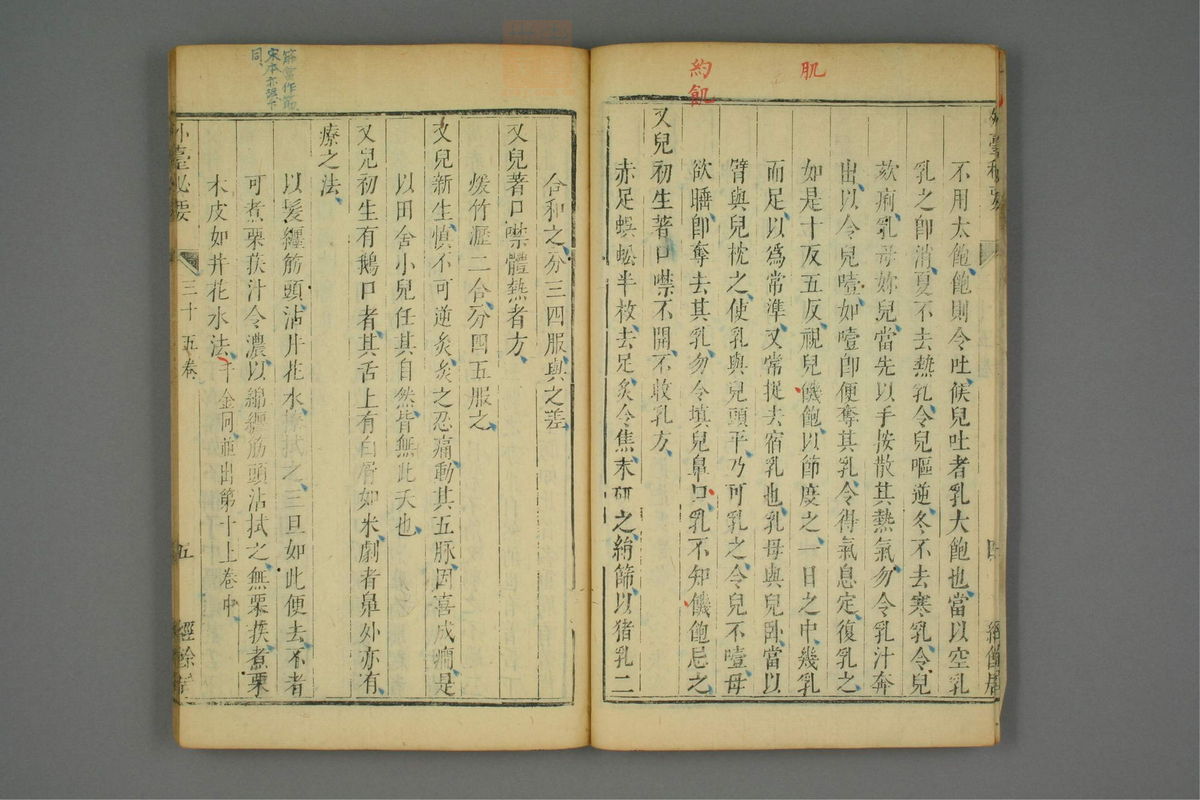 肌
約
飢
不用太飽飽則令吐候兒吐者乳大飽也當以空乳
乳之卽消夏不去熱乳令兒嘔逆冬不去寒乳令兒
欬痢乳母妳兒當先以手按散其熱氣勿令乳汁奔
出以令兒噎如噎卽便奪其乳令得氣息定復乳之
如是十反五反視兒饑飽以節度之一日之中幾乳
而足以爲常準又常捉去宿乳也乳母與兒臥當以
臂與兒枕之使乳與兒頭平乃可乳之令兒不噎母
欲𥅻卽奪去其乳勿令填兒鼻口乳不知饑飽忌之
又兒初生著口噤不開不收乳方
赤足蜈蚣半枚去足炙令焦末研之絹篩以猪乳二
合和之分三四服與之差
又兒著口噤體熱者方
煖竹瀝二合分四五服之
又兒新生慎不可逆灸灸之忍痛動其五脈因喜成癎是
以田舍小兒任其自然皆無此夭也
又兒初生有鵝口者其舌上有白屑如米劇者鼻外亦有
療之法
以髮纏筯頭沾井花水撩拭之三旦如此便去不者
可煮栗荴汁令濃以綿纏筯頭沾拭之無栗荴煮栗
木皮如井花水法千金同並出第十上卷中
外臺必要
三十五卷
五
經餘居